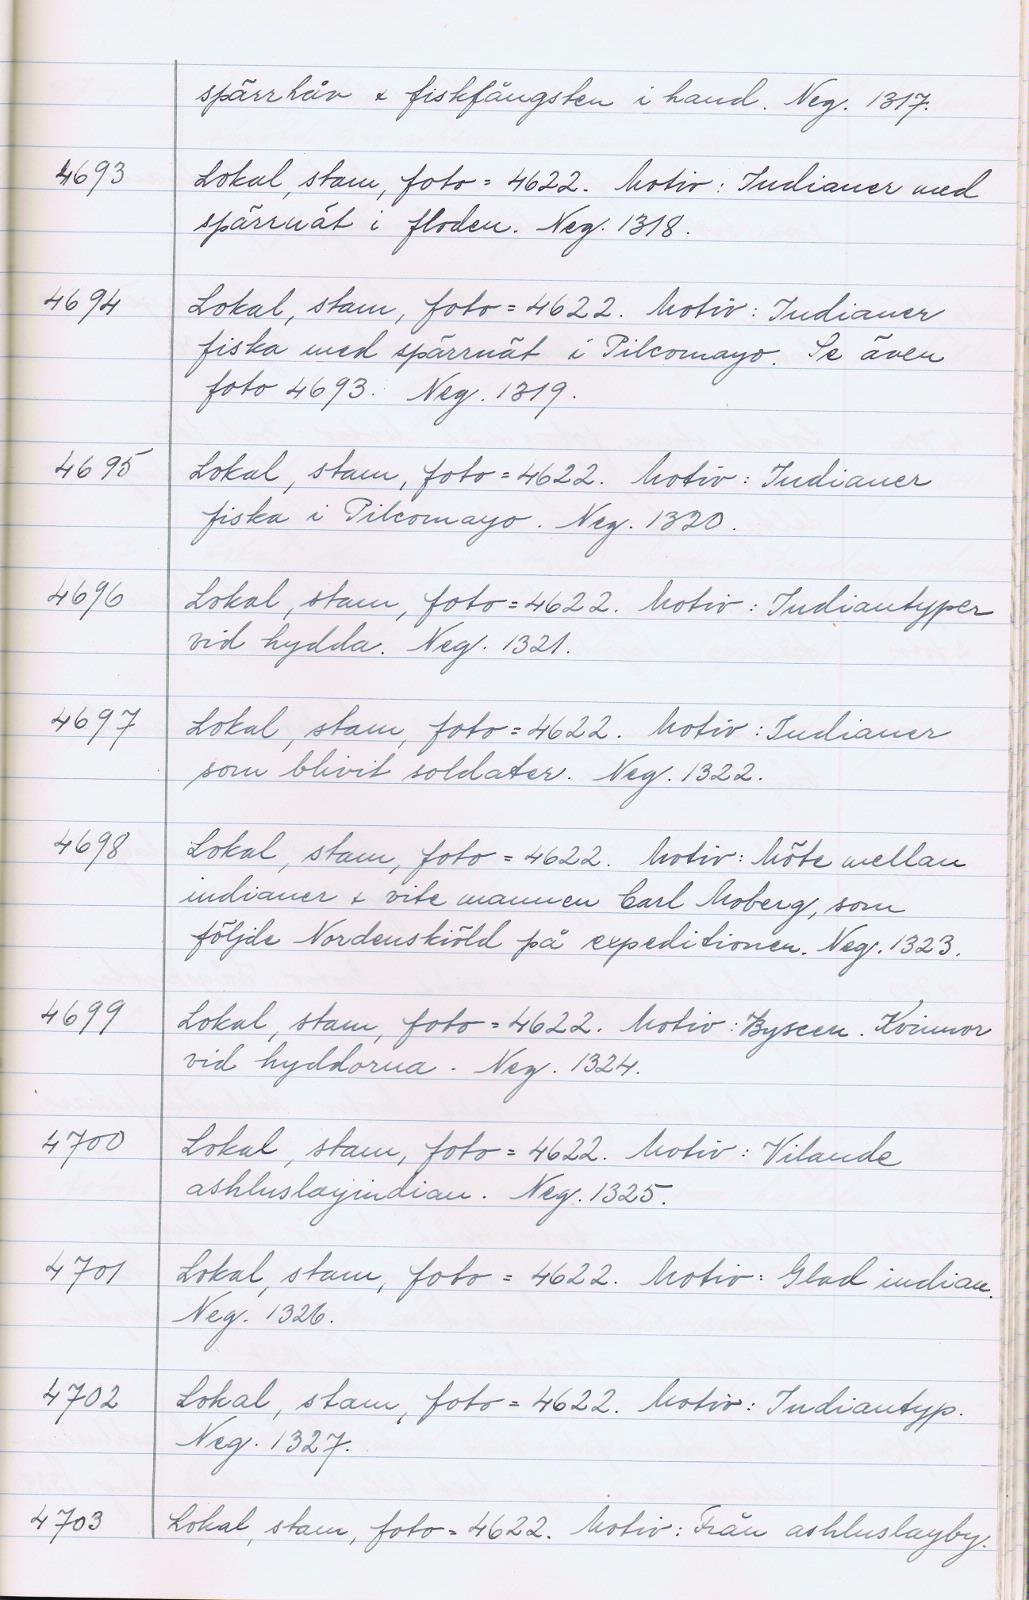 spärrhåv & fiskfångsten i hand. Neg. 1317.
4693 Lokal, stam, foto = 4622. Motiv: Indianer med
spärrnät i floden. Neg. 1318.
4694 Lokal, stam, foto = 4622. Motiv: Indianer
fiska med spärrnät i Pilcomayo. Se även
foto 4693. Neg. 1319.
4695 Lokal, stam, foto = 4622. Motiv: Indianer
fiska i Pilcomayo. Neg. 1320.
4696 Lokal, stam, foto = 4622. Motiv: Indiantyper
vid hydda. Neg. 1321.
4697 Lokal, stam, foto = 4622. Motiv: Indianer
som blivit soldater. Neg. 1322.
4698 Lokal, stam, foto = 4622. Motiv: Möte mellan
indianer & vite mannen Carl Moberg, som
följde Nordenskiöld på expeditionen. Neg. 1323.
4699 Lokal, stam, foto = 4622. Motiv: Byscen. Kvinnor
vid hyddorna. Neg. 1324.
4700 Lokal, stam, foto = 4622. Motiv: Vilande
ashluslayindian. Neg. 1325.
4701 Lokal, stam, foto = 4622. Motiv: Glad indian.
Neg. 1326.
4702 Lokal, stam, foto = 4622. Motiv: Indiantyp.
Neg. 1327.
4703 Lokal, stam, foto = 4622. Motiv: Från ashluslayby.